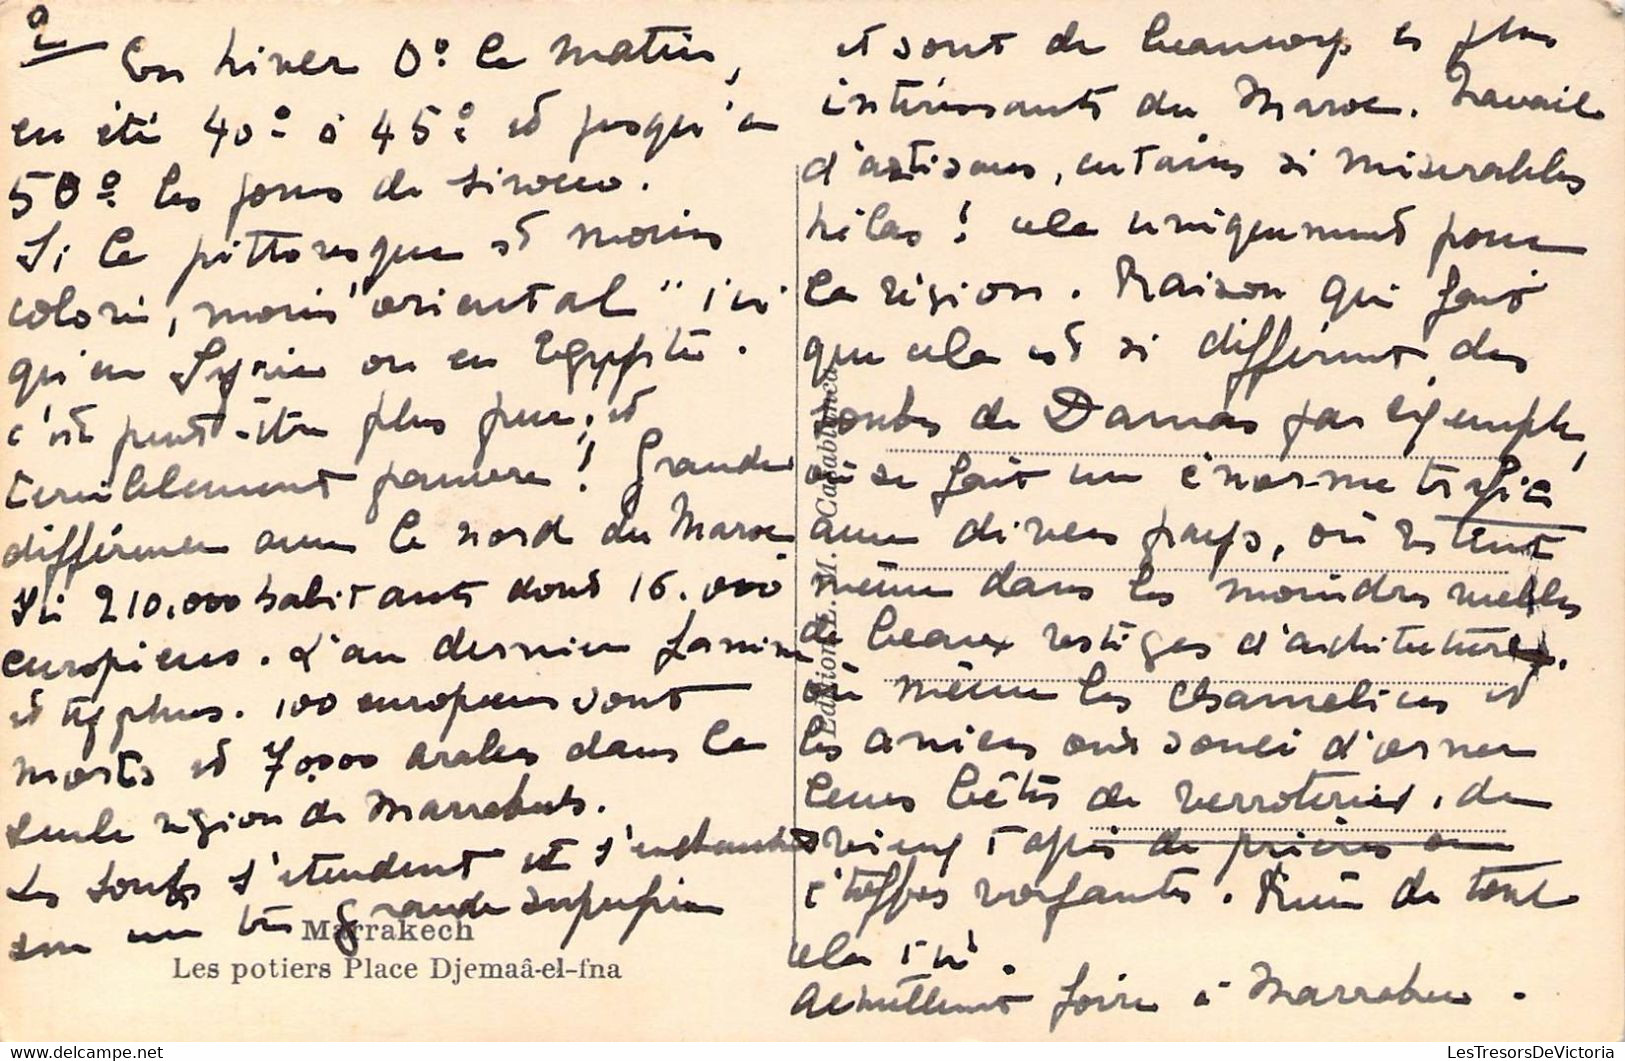 2
En hiver 0° le matin,
en été 40° à 45° et jusqu'à
50° les jours de siroco.
Si le pittoresque est moins
coloré, moins "oriental" ici
qu'en Syrie ou en Egypte.
c'est peut-être plus pur, et
terriblement pauvre ! Grande
différence avec le nord du Maroc
Ici 210.000 habitants dont 16.000
européens. L'an dernier famine
et typhus. 100 européens sont
morts et 7000 arabes dans la
seule région de Marrakech.
Les souks s'étendent et s'enchevêtrent
sur une très grande superficie
et sont de beaucoup les plus
intéressants du Maroc. Travail
d'artisans, certains si misérables
hélas ! cela uniquement pour
la région. Raison qui fait
que cela est si différent des
souks de Damas par exemple,
où se fait un énorme trafic
avec divers pays, où restent
même dans les moindres ruelles
de beaux vestiges d'architecture.
où même les chameliers et
les âniers ont souci d'orner
leurs bêtes de verroteries, de
vieux tapis de prières ou
d'étoffes voyantes. Rien de tout
cela ici.
Actuellement foire à Marrakech.
Marrakech
Les potiers Place Djemaâ-el-fna
Edition L.M. Casablanca
LesTresorsDeVictoria